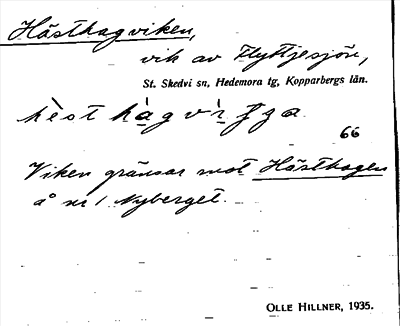 Hästhagviken,
vik av Flyttjesjön,
St. Skedvi sn, Hedemora tg, Kopparbergs län.
66
Viken gränsar mot Hästhagen
å nr 1 Nyberget.
OLLE HILLNER, 1935.